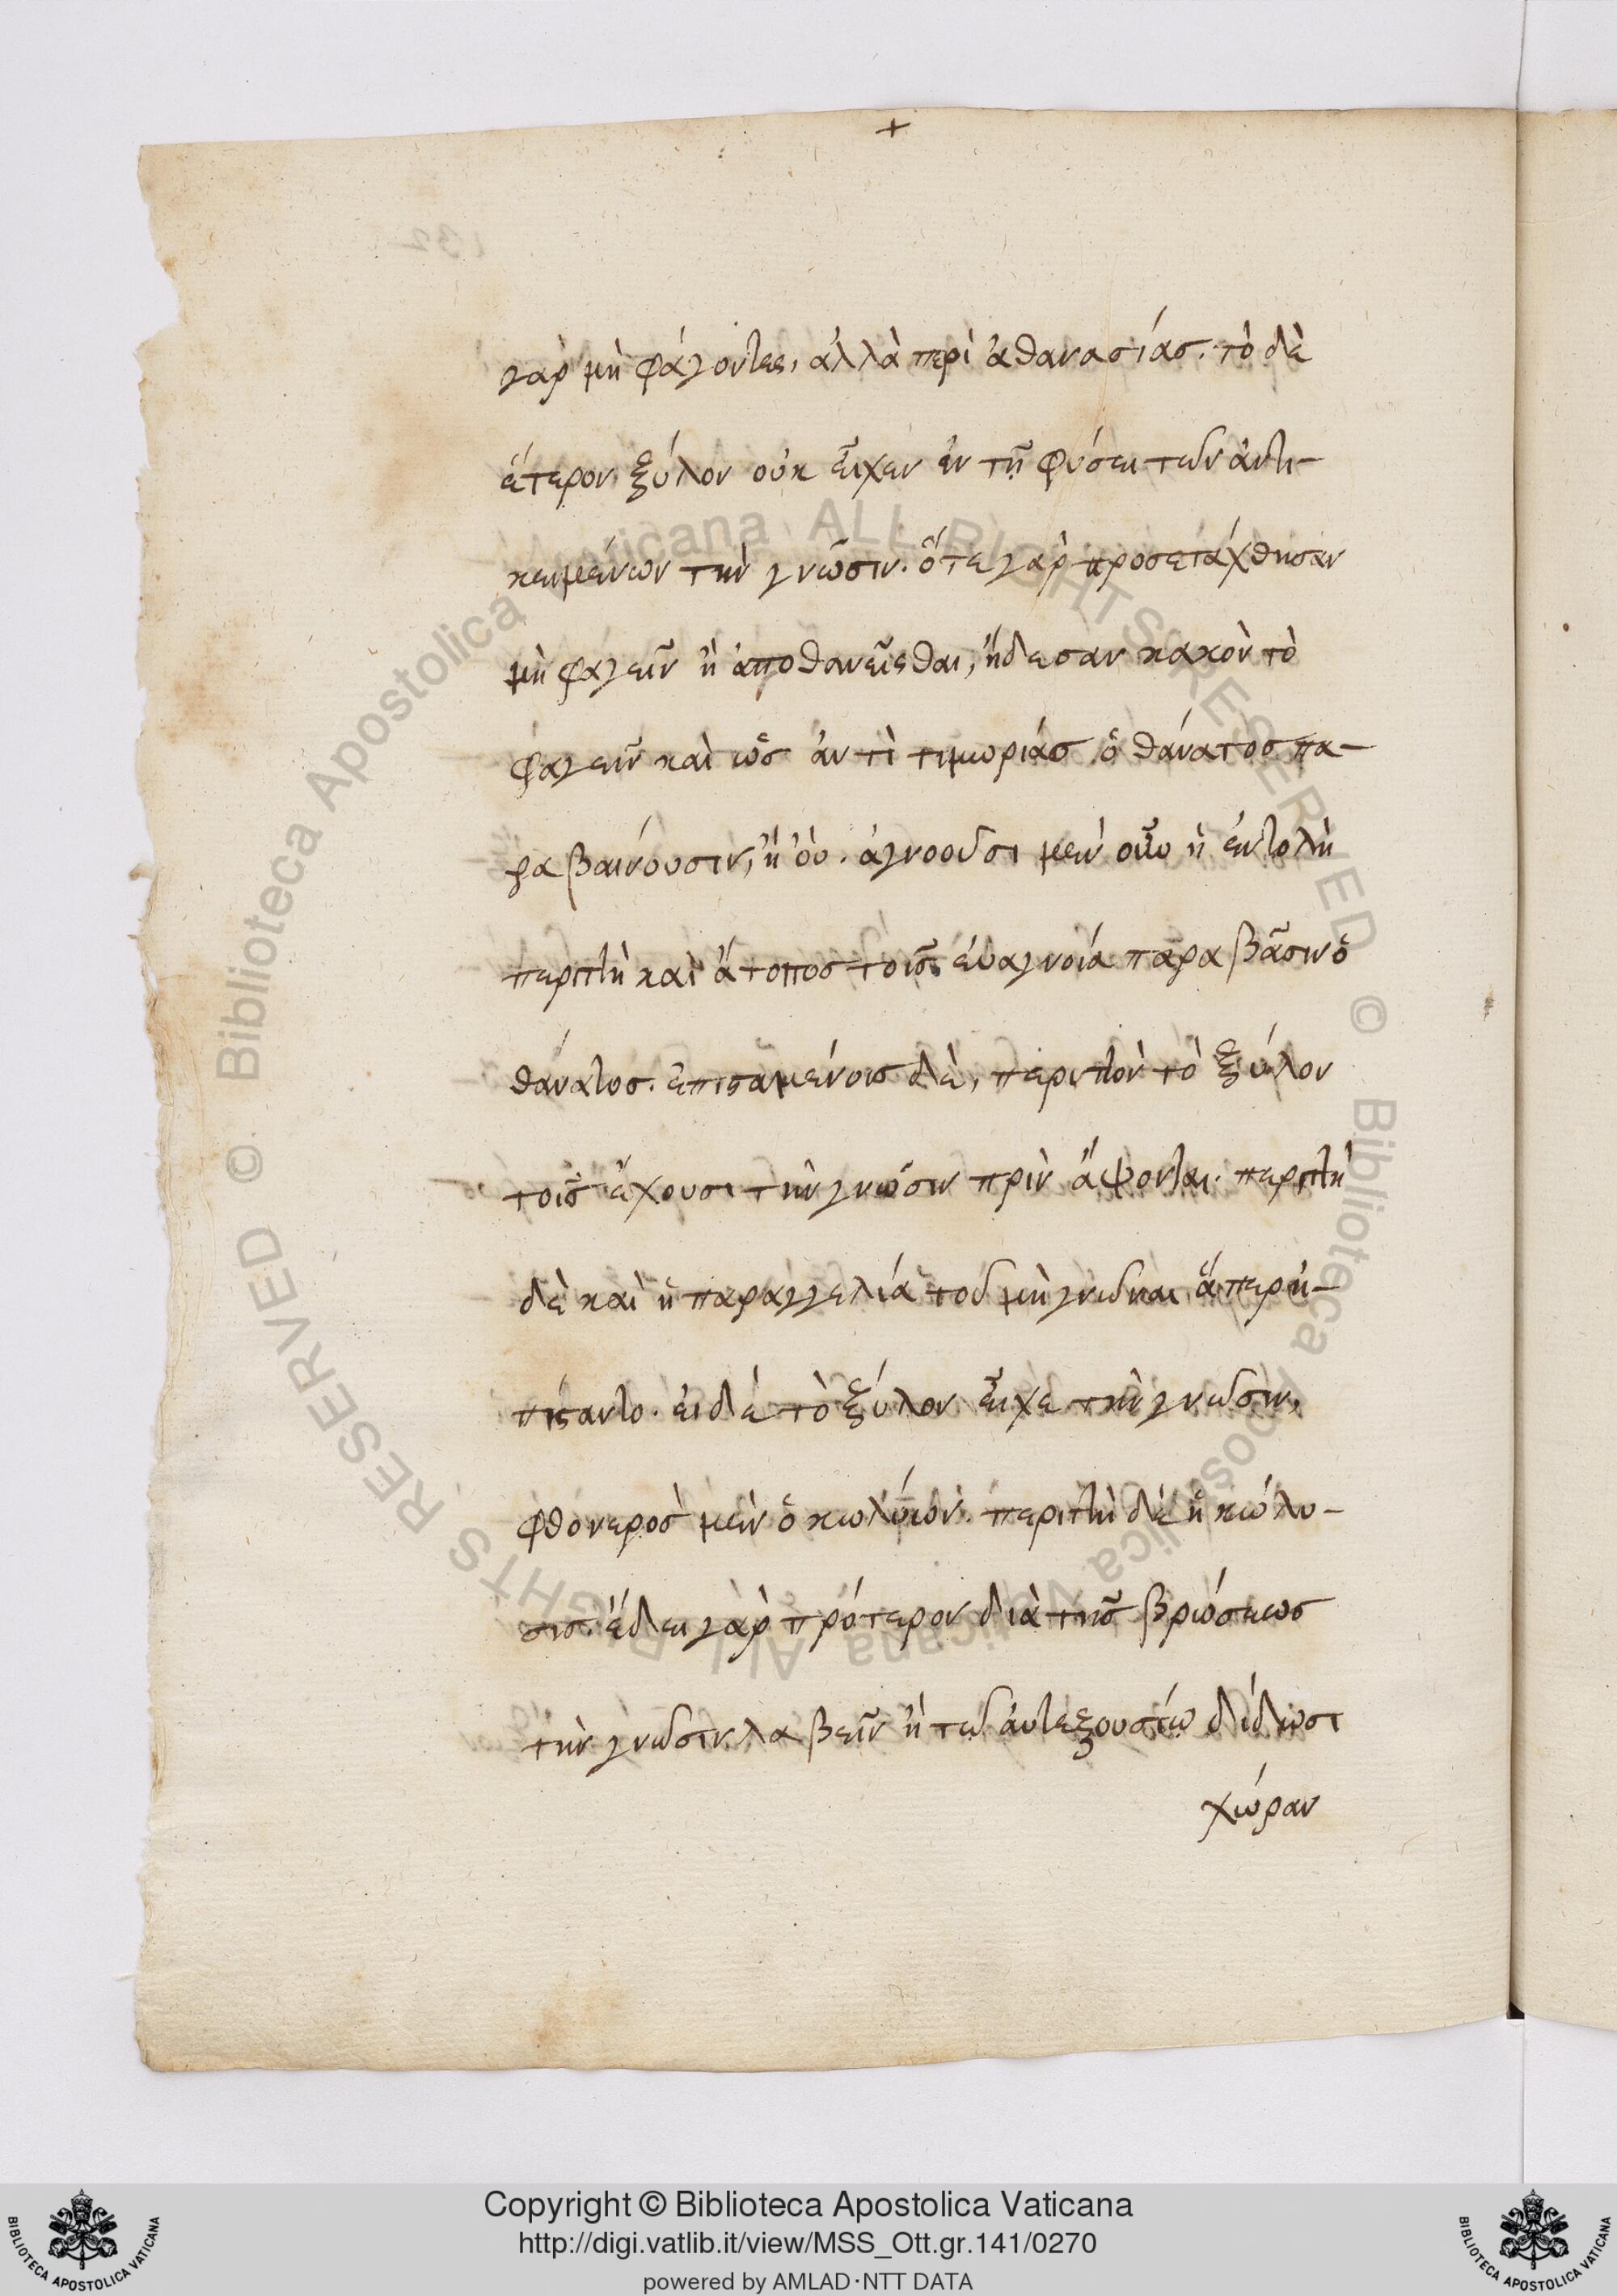 +
γὰρ μὴ φάγοντες, ἀλλὰ περὶ ἀθανασίας. τὸ δὲ
ἕτερον ξύλον οὐκ εἶχεν ἐν τῇ φύσει τῶν ἀντι-
κειμένων τὴν γνῶσιν. ὅτε γὰρ προσετάχθησαν
μὴ φαγεῖν ἢ ἀποθανεῖσθαι, ἤδεσαν κακὸν τὸ
φαγεῖν καὶ ὡς ἀντὶ τιμωρίας ὁ θάνατος πα-
ραβαίνουσιν, ἢ οὐ. ἀγνοοῦσι μὲν οὖν ἡ ἐντολὴ
περιττὴ καὶ ἄτοπος τοῖς ἐν ἀγνοίᾳ παραβᾶσιν ὁ
θάνατος. ἐπισταμένοις δὲ, περιττὸν τὸ ξύλον
τοῖς ἔχουσι τὴν γνῶσιν πρὶν ἅψονται. περιττὴ
δὲ καὶ ἡ παραγγελία τοῦ μὴ γνῶναι ἅπερ ἠ-
πίσταντο. εἰ δὲ τὸ ξύλον εἶχε τὴν γνῶσιν,
φθονερὸς μὲν ὁ κωλύων. περιττὴ δὲ ἡ κώλυ-
σις. ἔδει γὰρ πρότερον διὰ τῆς βρώσεως
τὴν γνῶσιν λαβεῖν ἢ τῷ αὐτεξουσίῳ δίδωσι
χώραν
Copyright © Biblioteca Apostolica Vaticana
http://digi.vatlib.it/view/MSS_Ott.gr.141/0270
powered by AMLAD·NTT DATA